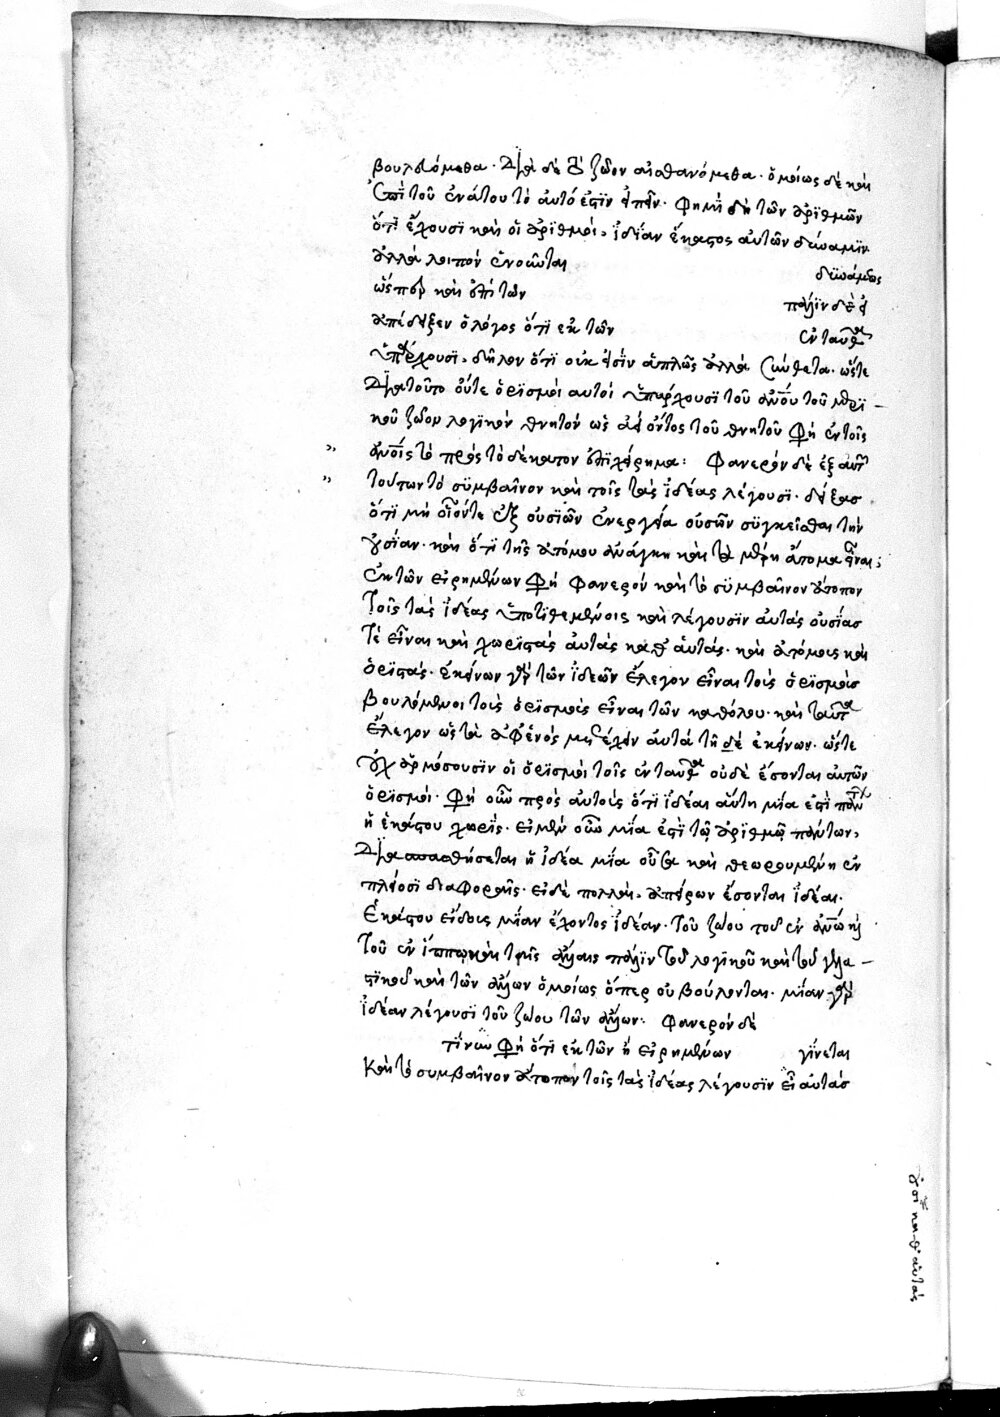 βουλευόμεθα. διὰ δὲ τὸ ζῶον αἰσθανόμεθα. ὁμοίως δὲ καὶ
ἐπὶ τοῦ ἐνάτου τὸ αὐτό ἐστιν εἰπεῖν. φημὶ δὴ τῶν ἀριθμῶν
ὅτι ἔχουσι καὶ οἱ ἀριθμοὶ, ἰδίαν ἕκαστος αὐτῶν δύναμιν
ἀλλὰ λοιπὸν ἑνοῦνται δυνάμεως
ὥσπερ καὶ ἐπὶ τῶν πάλιν δὲ
ἀπέδειξεν ὁ λόγος ὅτι ἐκ τῶν ἐνταῦθα
ὑπάρχουσι, δῆλον ὅτι οὐκ εἰσὶν ἁπλῶς ἀλλὰ σύνθετα. ὥστε
διὰ τοῦτο οὔτε ὁρισμοὶ αὐτοὶ ὑπάρχουσι τοῦ ἀνου τοῦ μερι-
κοῦ ζῶον λογικὸν θνητὸν ὡς ὄντος τοῦ θνητοῦ φησὶ ἐν τοῖς
ἀνοις τὸ πρὸς τὸ δέκατον ἐπιχείρημα: φανερὸν δὲ ἐξ αὐτῶν
τούτων τὸ συμβαῖνον καὶ τοῖς τὰς ἰδέας λέγουσι. δείξας
ὅτι μὴ οἷόν τε ἐξ οὐσιῶν ἐνεργείᾳ οὐσῶν συγκεῖσθαι τὴν
οὐσίαν. καὶ ὅτι τῆς ἀτόμου ἀνάγκη καὶ τὰ μέρη ἄτομα εἶναι:
ἐκ τῶν εἰρημένων φησὶ φανερὸν καὶ τὸ συμβαῖνον ἄτοπον
τοῖς τὰς ἰδέας ὑποτιθεμένοις καὶ λέγουσιν αὐτὰς οὐσίας
τὲ εἶναι καὶ χωριστὰς αὐτὰς καθ' αὑτάς. καὶ ἀτόμους καὶ
ὁριστάς. ἐκείνων γὰρ τῶν ἰδεῶν ἔλεγον εἶναι τοὺς ὁρισμοὺς
βουλόμενοι τοὺς ὁρισμοὺς εἶναι τῶν καθόλου. καὶ ταῦτα
ἔλεγον ὥστε
οὐχ ἁρμόσουσιν οἱ ὁρισμοὶ τοῖς ἐνταῦθα οὐδὲ ἔσονται αὐτῶν
ὁρισμοί. φησὶ οὖν πρὸς αὐτοὺς ὅτι ἰδέαι αὕτη μία ἐστὶ
ἢ ἑκάστου χωρίς. εἰ μὲν οὖν μία ἐστὶ τῷ ἀριθμῷ πάντων,
διασπασθήσεται ἡ ἰδέα μία οὖσα καὶ θεωρουμένη ἐν
πλείοσι διαφοραῖς. εἰ δὲ πολλαὶ, ἄπειροι ἔσονται ἰδέαι.
ἑκάστου εἴδους μίαν ἔχοντος ἰδέαν. τοῦ ζώου τοῦ ἐν ἀνω καὶ
τοῦ ἐν ἵππῳ καὶ τοῖς ἄλλοις πάλιν τοῦ λογικοῦ καὶ τοῦ
καὶ τῶν ἄλλων ὁμοίως ὅπερ οὐ βούλονται. μίαν γὰρ
ἰδέαν λέγουσι τοῦ ζώου τῶν ἄλλων: φανερὸν δὲ
φησὶ ὅτι ἐκ τῶν ἢ εἰρημένων γίνεται
καὶ τὸ συμβαῖνον ἄτοπον τοῖς τὰς ἰδέας λέγουσιν εἰ αὐτὰς
καθ' αὑτάς